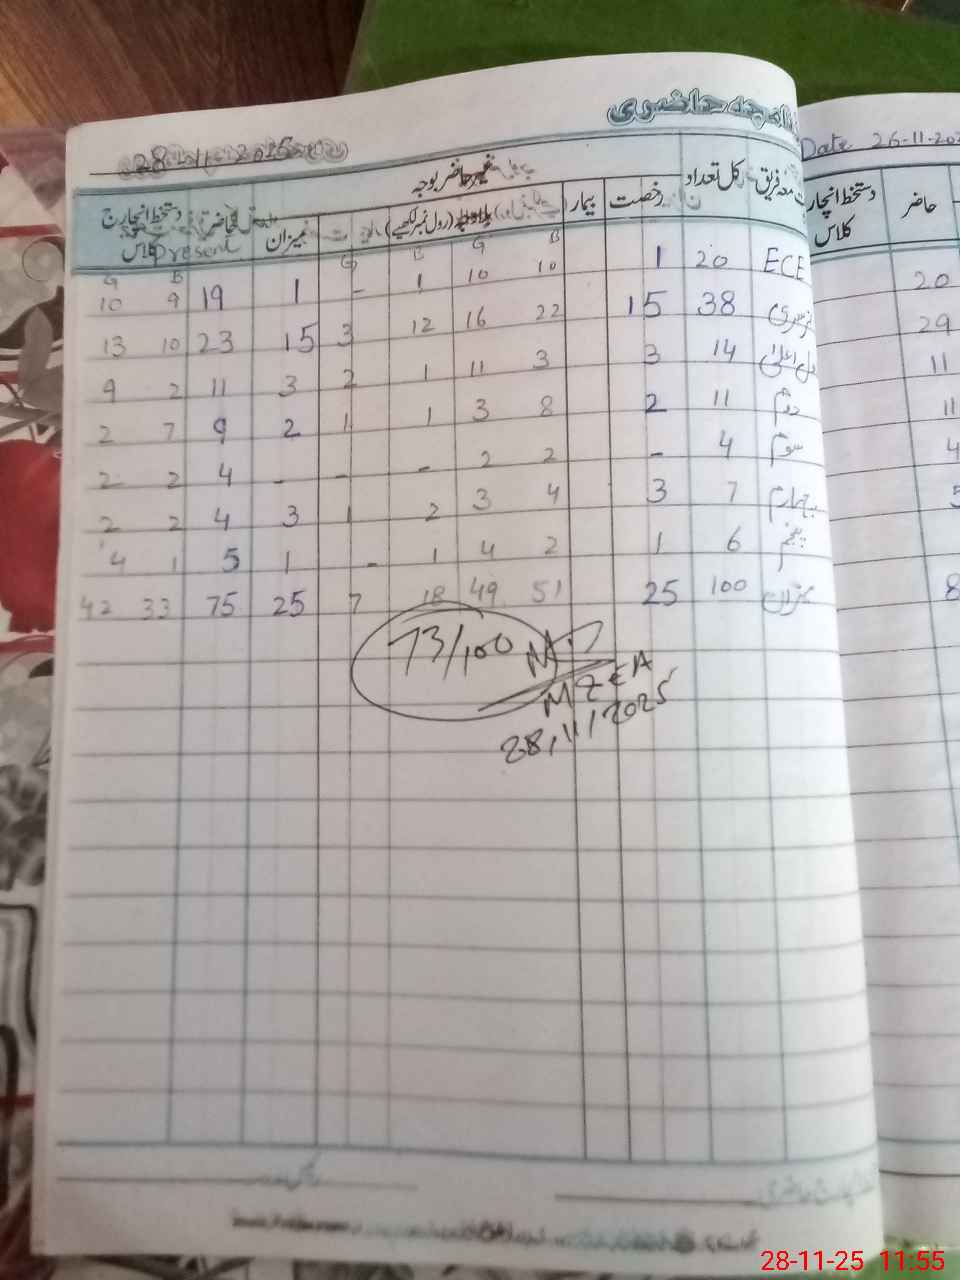 حاضری
28-11-2025
Date 26-11-202
غیر حاضر بوجہ
کل تعداد
معہ فریق
رخصت
بیمار
(رول نمبر لکھیے)
میزان
حاضر
دستخط انچارج
کلاس
Present
دستخط انچار
کلاس
حاضر
ECE 20 1 B 10 G 10 B 1 G - 1 19 B 9 G 10
20
نرسری 38 15 22 16 12 3 15 23 10 13
29
14 3 3 11 1 2 3 11 2 9
11
دوم 11 2 8 3 1 1 2 9 7 2
11
سوم 4 - 2 2 - - - 4 2 2
4
چہارم 7 3 4 3 2 1 3 4 2 2
5
پنجم 6 1 2 4 1 - 1 5 1 4
میزان 100 25 51 49 18 7 25 75 33 42
8
73/100
MZEA
28,11/2025
28-11-25 11:55